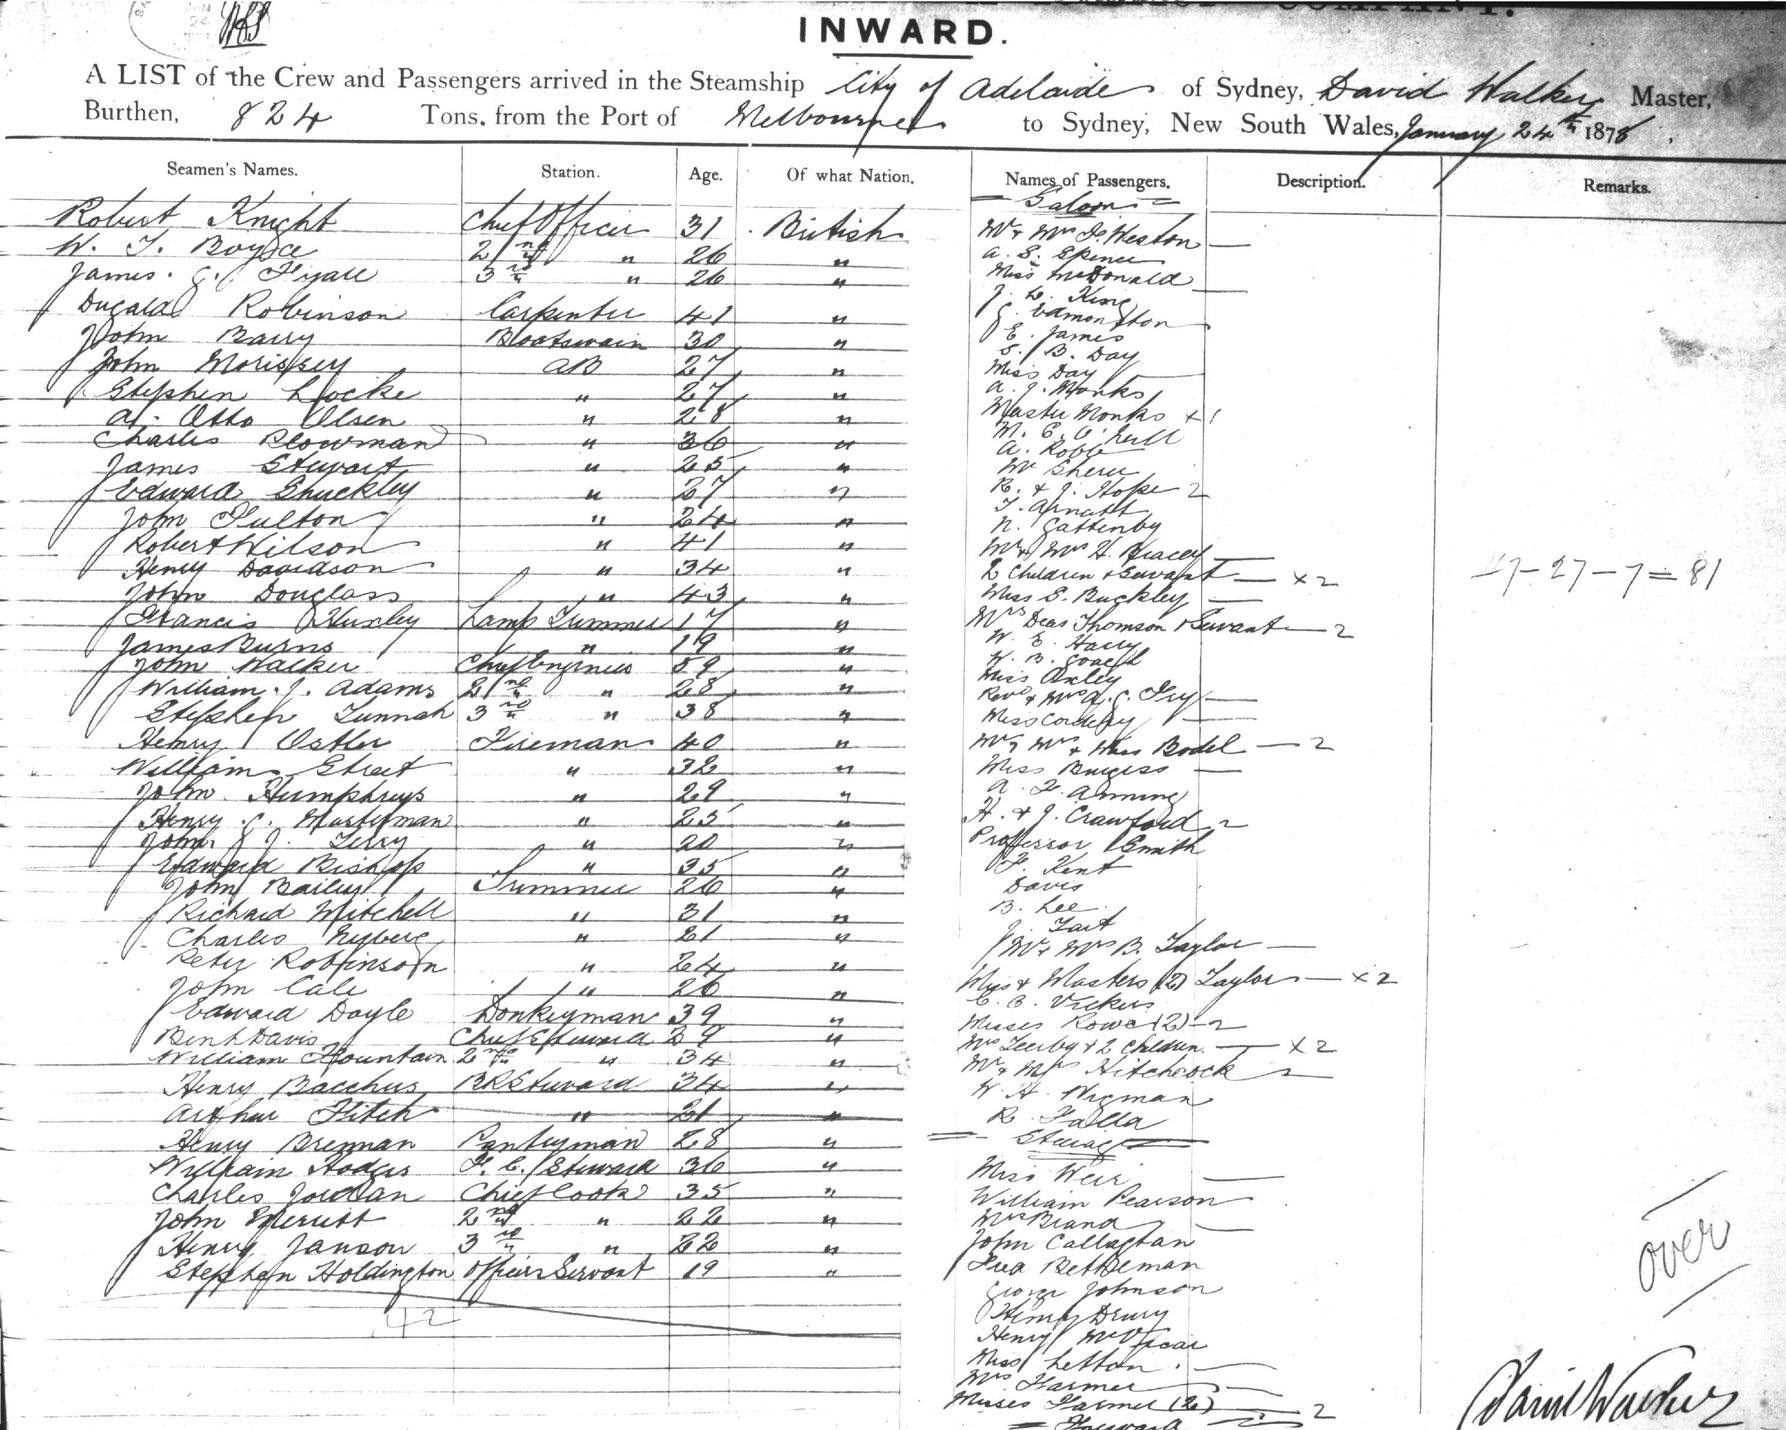 INWARD.
A LIST of the Crew and Passengers arrived in the Steamship City of Adelaide of Sydney, David Walker Master,
Burthen, 824 Tons. from the Port of Melbourne to Sydney, New South Wales, January 24th 1878.
Seamen's Names. Station. Age. Of what Nation. Names of Passengers. Description. Remarks.
Robert Knight Chief Officer 31 British
W. T. Boyce 2nd " 26 "
James. C. 3rd " 26 "
Dugald Robinson Carpenter 41 "
John Barry Boatswain 30 "
John Morissey AB 27 "
Stephen Locke " 27 "
A. Otto Olsen " 28 "
Charles Plowman " 36 "
James Stewart " 25 "
Edward Shuckley " 27 "
John Fulton " 24 "
Robert Wilson " 41 "
Henry Davidson " 34 "
John Douglass " 43 "
Francis Huxley Lamp Trimmer 17 "
James Burns " 19 "
John Walker Chief Engineer 59 "
William. J. Adams 2nd " 28 "
Stephen Tunnah 3rd " 38 "
Henry Ostler Fireman 40 "
William Street " 32 "
John Humphreys " 29 "
Henry C. " 25 "
John J. Terry " 20 "
Edward Bishop " 35 "
John Bailey Trimmer 26 "
Richard Mitchell " 31 "
Charles Nyberg " 21 "
Peter Robinson " 24 "
John Cale " 26 "
Edward Doyle Donkeyman 39 "
Davis Chief Steward 29 "
William Fountain 2nd " 34 "
Henry Bacchus Steward 34 "
Arthur Fitch " 21 "
Henry Brennan Pantryman 28 "
William Hodges F. C. Steward 36 "
Charles Jordan Chief Cook 35 "
John 2nd " 22 "
Henry Janson 3rd " 22 "
Stephen Holdington Officers Servant 19 "
42
Saloon
Mr & Mrs Weston
A. S. Spence
Miss McDonald
J. L. King
G. Edmonston
E. James
S. B. Day
Miss Day
A. J. Monks
Master Monks x 1
M. E. O'Neill
A. Robb
R. & J. Hope 2
T. Arnatt
N. Gattenby
Mr & Mrs H.
2 Children & Servant x 2
Miss S. Buckley
Mrs Deas Thomson & Servant 2
W. E. Harry
W. B.
Miss Oxley
Revd & Mrs A. C.
Miss Cordery
Mr, Mrs & Miss Bodel 2
Miss Burgess
A. F. Anning
H. & J. Crawford 2
Professor Smith
F. Kent
Davis
B. Lee
J. Tart
Mr & Mrs B. Taylor
Miss & Masters (2) Taylor x 2
C. B. Vickers
Misses Rowe (2) 2
Mrs & 2 Children x 2
Mr & Mrs Hitchcock
W. H. Wigman
R.
Steerage
Miss Weir
William Pearson
Mrs Brand
John Callaghan
George Johnson
Henry Drury
Henry McVicar
Miss Letton
Mrs Farmer
Misses Farmer (2) 2
27 - 7 = 81
over
David Walker